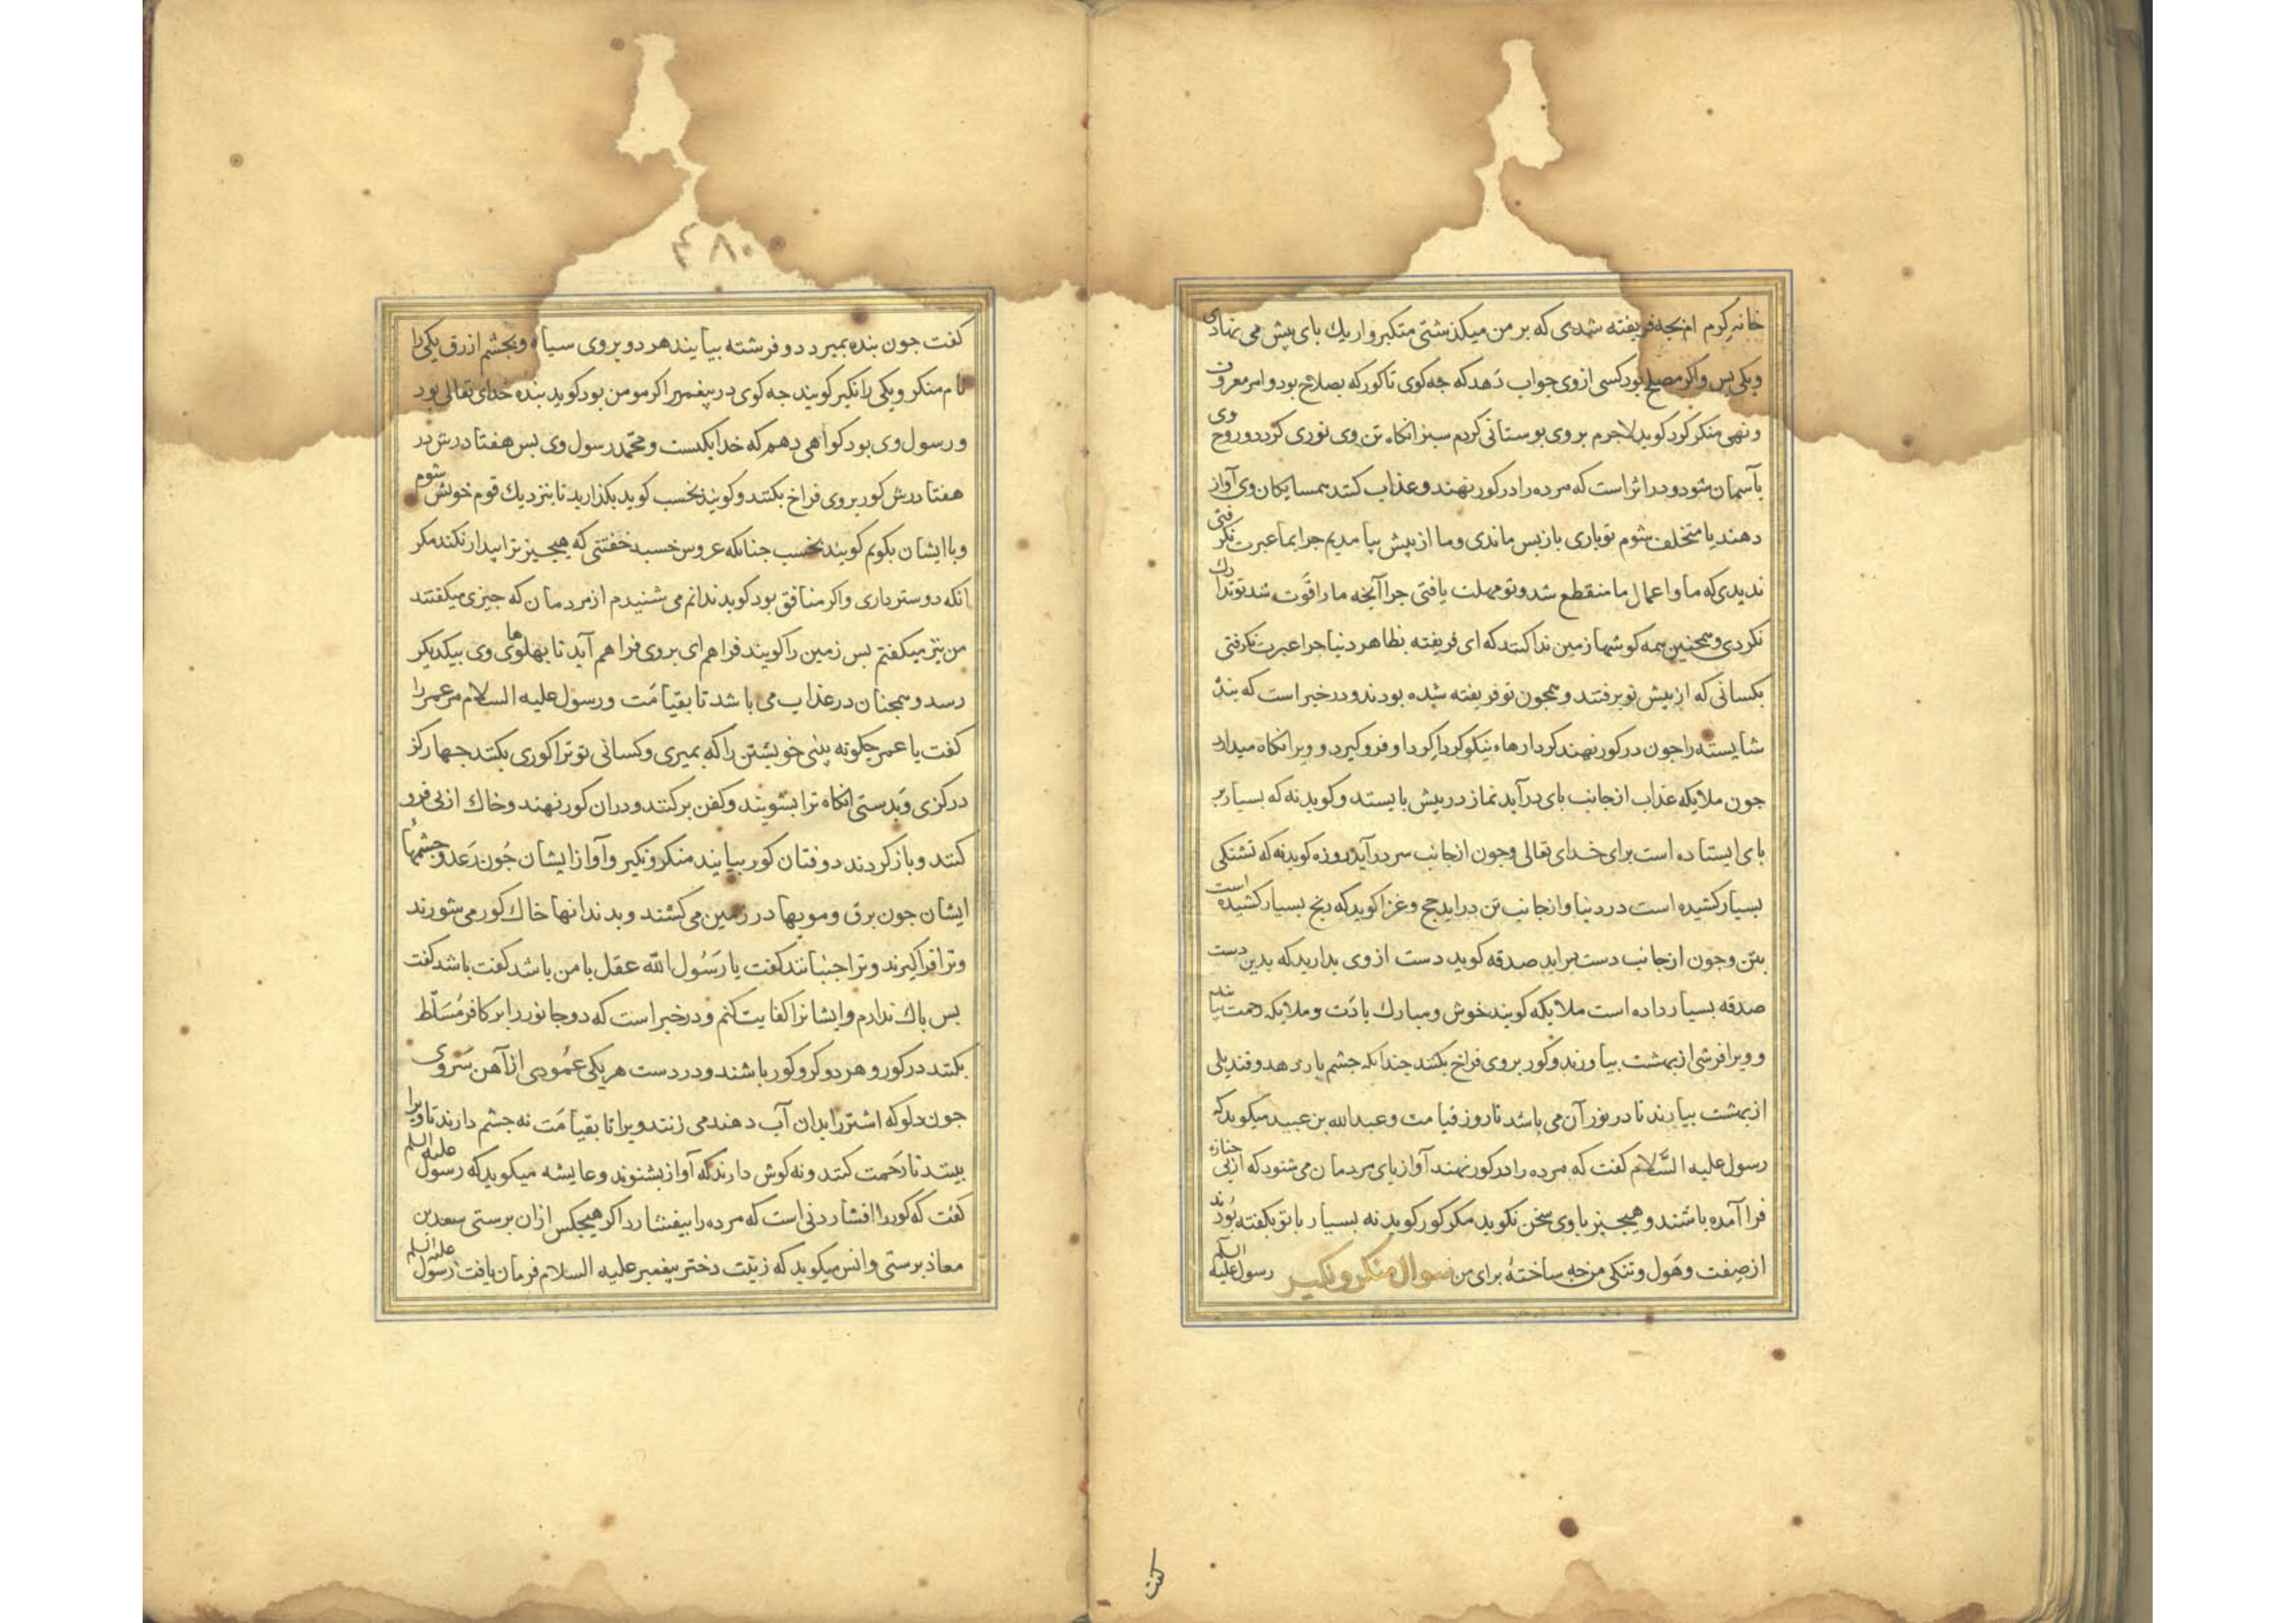 خانه کرم ام بجه فریفته شدی که بر من میکذشتی متکبروار یك بای پیش می نهادی
ویکی پس واکر مصلح بود کسی ازوی جواب دهد که جه کوی تا کور که بصلاح بود و امر معروف
ونهی منکر کرد کوید لاجرم بروی بوستانی کردم سبز انکاه تن وی نوری کردد و روح وی
بآسمان شود و در اثر است که مرده را در کور نهند و عذاب کنند همسایکان وی آواز
دهند یا متخلف شوم تو باری باز پس ماندی و ما از پیش بیامدیم جرا بما عبرت نکرفتی
ندیدی که ما و اعمال ما منقطع شد و تو مهلت یافتی جرا آنجه ما را فوت شد تو تدارك
نکردی و همجنین همه کوشها زمین ندا کنند که ای فریفته بظاهر دنیا جرا عبرت نکرفتی
بکسانی که از پیش تو برفتند و همجون تو فریفته شده بودند و در خبر است که بندۀ
شایسته را جون در کور نهند کردارهاء نیکو کرداکرد او فرو کیرد و ویرا نکاه میدارد
جون ملایکه عذاب از جانب بای درآید نماز در پیش بایستد و کوید نه که بسیار بر
بای ایستاده است برای خدای تعالی وجون از جانب سر درآید روزه کوید نه که تشنکی
بسیار کشیده است در دنیا واز جانب تن در اید حج و غزا کوید که رنج بسیار کشیده است
بتن وجون از جانب دست براید صدقه کوید دست از وی بدارید که بدین دست
صدقه بسیار داده است ملایکه کویند خوش و مبارك بادت و ملایکه رحمت بیایند
و ویرا فرشی از بهشت بیاورند و کور بروی فراخ بکنند جندانکه جشم بار دهد و قندیلی
از بهشت بیارند تا در نور آن می باشد تا روز قیامت و عبدالله بن عبید میکوید که
رسول علیه السَّلام کفت که مرده را در کور نهند آواز بای مردمان می شنود که از پی جنازه
فرا آمده باشند و هیجیز باوی سخن نکوید مکر کور کوید نه بسیار با تو بکفته بودند
از صفت و هَول و تنکی من جه ساختۀ برای من سوال منکر و نکیر رسول علیه السلم
کفت
۴۸۰
کفت جون بنده بمیرد دو فرشته بیایند هر دو بروی سیاه و بجشم ازرق یکی را
نام منکر و یکی را نکیر کویند جه کوی در پیغمبر اکر مومن بود کوید بنده خدای تعالی بود
و رسول وی بود کواهی دهم که خدا یکست و محمّد رسول وی بس هفتاد رش در
هفتاد رش کور بروی فراخ بکنند و کویند بخسب کوید بکذارید تا بنزدیك قوم خویش شوم
و با ایشان بکویم کویند بخسب جنانکه عروس خسبد خفتنی که هیجیز ترا بیدار نکند مکر
انکه دوستر داری و اکر منافق بود کوید ندانم می شنیدم از مردمان که جیزی میکفتند
من نیز میکفتم بس زمین را کویند فراهم ای بروی فراهم آید تا بهلوهای وی بیکدیکر
رسد و همجنان در عذاب می باشد تا بقیامَت و رسول علیه السلام مر عمر را
کفت یا عمر جکونه بینی خویشتن را که بمیری و کسانی تو ترا کوری بکنند جهار کز
در کزی و بدستی انکاه ترا بشویند و کفن برکنند و دران کور نهند و خاك از بی فرو
کنند و باز کردند دو فتان کور بیایند منکر و نکیر و آواز ایشان جُون رَعد و جشمها
ایشان جون برق و مویها در زمین می کشند و بدندانها خاك کور می شورند
و ترا فرا کیرند و ترا جنبانند کفت یا رَسُول اللّه عقل با من باشد کفت باشد کفت
بس باك ندارم و ایشانرا کفایت کنم و در خبر است که دو جانور را بر کافر مُسَلّط
بکنند در کور و هر دو کر و کور باشند و در دست هر یکی عمُودی از آهن سَروی
جون دلو که اشتر را بدان آب دهند می زنند ویرا تا بقیامَت نه جشم دارند تا ویرا
بینند تا رَحمت کنند و نه کوش دارند که آواز بشنوند و عایشه میکوید که رسول علیه السلم
کفت که کور را افشاردنی است که مرده را بیفشارد اکر هیجکس از ان برستی سعد بن
معاذ برستی و انس میکوید که زینَت دختر پیغمبر علیه السلام فرمان یافت رسول علیه السلم